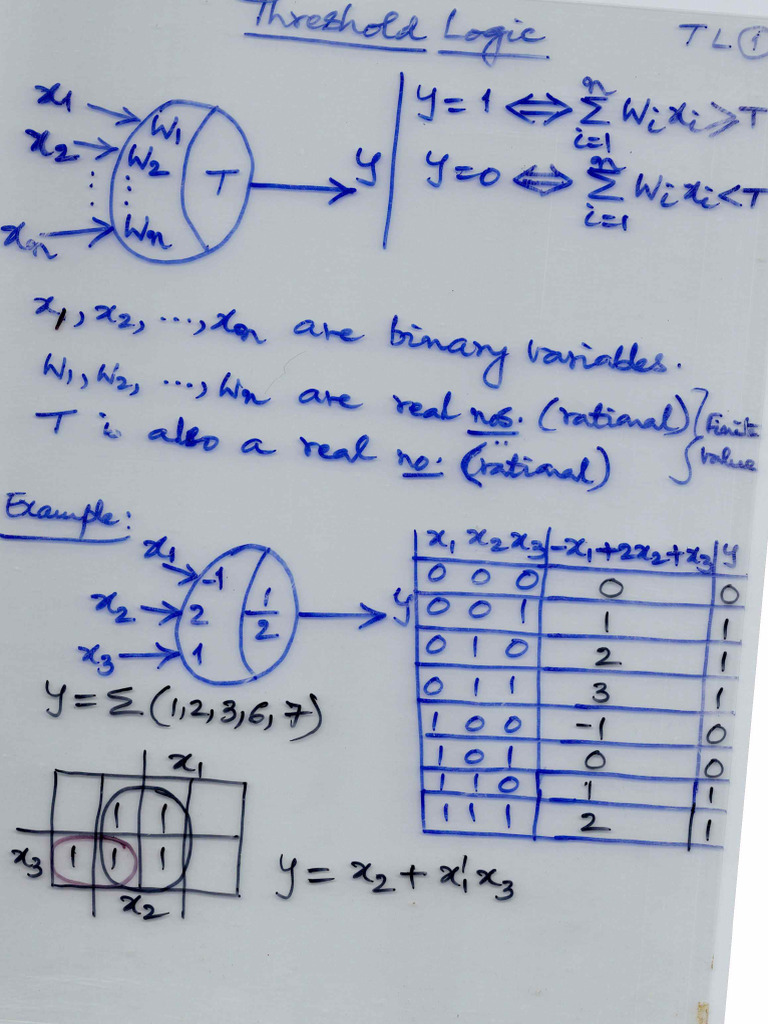 Threshold Logic TL ①
x₁ W₁ y = 1 ⟺ Σ Wᵢxᵢ ⩾ T
x₂ W₂ T y y = 0 ⟺ Σ Wᵢxᵢ < T
⋮ ⋮ n i=1
xₙ Wₙ n i=1
x₁, x₂, ..., xₙ are binary variables.
W₁, W₂, ..., Wₙ are real nos. (rational) } Finite
T is also a real no. (rational) value
Example:
x₁ -1
x₂ 2 1/2 y
x₃ 1
y = Σ(1,2,3,6,7)
x₁ x₂ x₃ -x₁+2x₂+x₃ y
0 0 0 0 0
0 0 1 1 1
0 1 0 2 1
0 1 1 3 1
1 0 0 -1 0
1 0 1 0 0
1 1 0 1 1
1 1 1 2 1
x₁
1 1
x₃ 1 1 1
x₂
y = x₂ + x₁'x₃